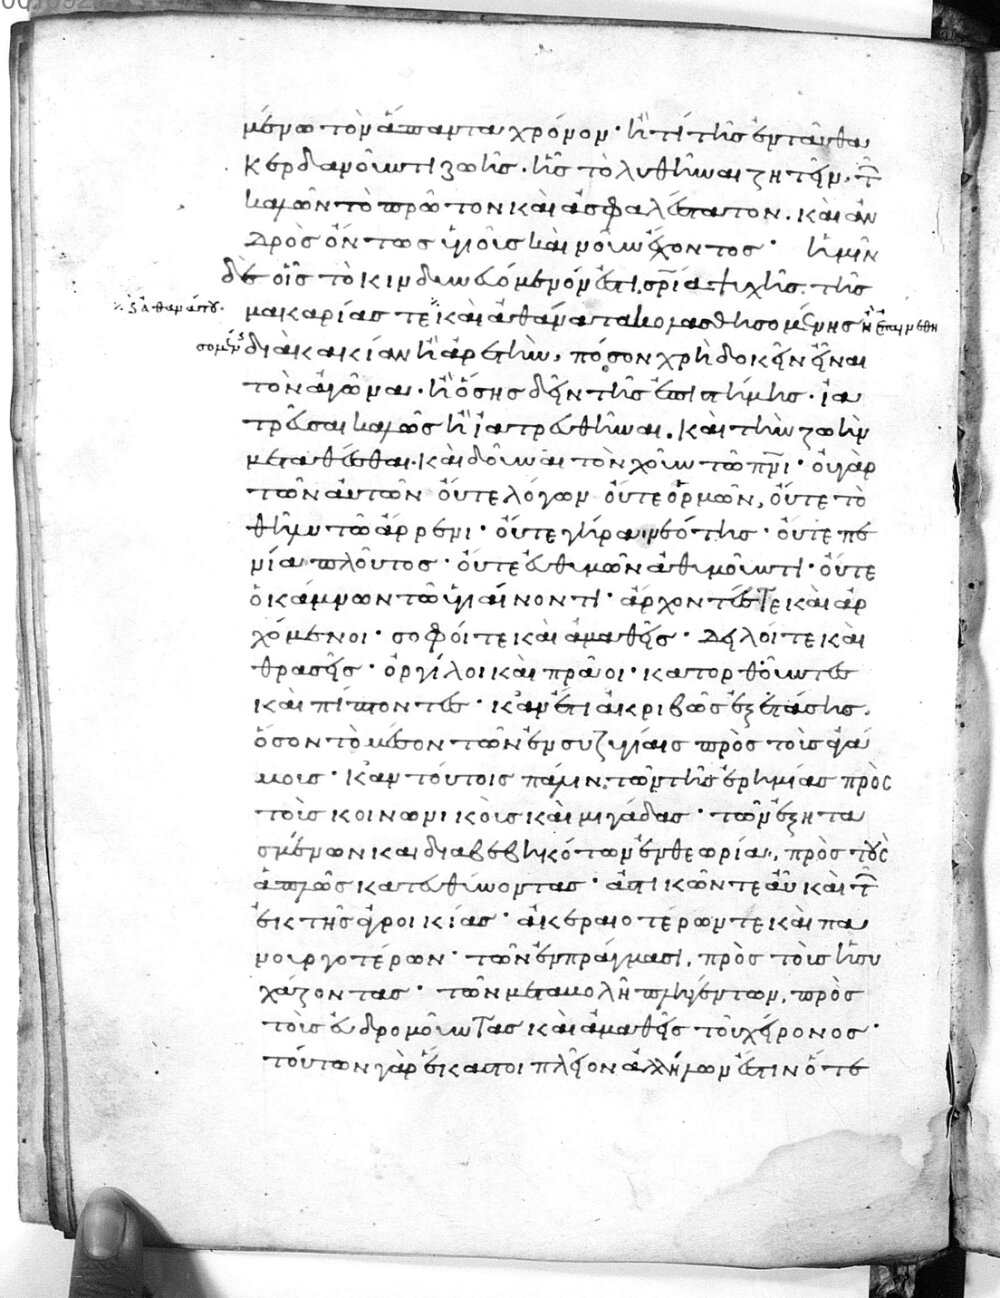 μένω τὸν ἅπαντα χρόνον· ἢ τί τῆς ἐνταῦθα
κερδανοῦντι ζωῆς. ἧς τὸ λυθῆναι ζητεῖν. τ͂
καλῶν τὸ πρῶτον καὶ ἀσφαλέστατον. καὶ ἀν
δρὸς ὄντως ὑγιοῦς καὶ νοῦν ἔχοντος· ἡμῖν
δὲ οἷς τὸ κινδυνευόμενόν ἐστι σρία ψυχῆς. τῆς
⁒ ς ἀθανάτου·
μακαρίας τε καὶ ⁒ ἀθάνατα κολασθησομένης ἢ ἐπαινεθη
σομένς διὰ κακίαν ἢ ἀρετὴν, πόσον χρὴ δοκεῖν εἶναι
τὸν ἀγῶνα. ἢ ὅσης δεῖν τῆς ἐπιστήμης. ἰα
τρεῦσαι καλῶς ἢ ἰατρευθῆναι. καὶ τὴν ζωὴν
μεταθέσθαι. καὶ δοῦναι τὸν χοῦν τῶ πνι· οὐ γὰρ
τῶν αὐτῶν οὔτε λόγων οὔτε ὁρμῶν, οὔτε τὸ
θῆλυ τῶ ἄρρενι· οὔτε γήρα νεότης· οὔτε πε
νία πλοῦτος· οὔτε εὐθυμῶν ἀθυμοῦντι· οὔτε
ὁ κάμνων τῶ ὑγιαίνοντι· ἄρχοντές τε καὶ ἀρ
χόμενοι· σοφοί τε καὶ ἀμαθεῖς· δειλοί τε καὶ
θρασεῖς· ὀργίλοι καὶ πρᾶοι· κατορθοῦντες
καὶ πίπτοντες· κἂν ἔτι ἀκριβῶς ἐξετάσης.
ὅσον τὸ μέσον τῶν ἐν συζυγίαις πρὸς τοὺς ἀγά
μοις· κἀν τούτοις πάλιν. τῶν τῆς ἐρημίας πρὸς
τοὺς κοινωνικοὺς καὶ μιγάδας· τῶν ἐξητα
σμένων καὶ διαβεβηκότων ἐν θεωρία, πρὸς τοὺς
ἁπλῶς κατευθύνοντας· ἀστικῶν τε αὖ καὶ τ͂
ἐκ τῆς ἀγροικίας· ἀκεραιοτέρων τε καὶ πα
νουργοτέρων· τῶν ἐν πράγμασι, πρὸς τοὺς ἡσυ
χάζοντας· τῶν μεταβολῆ πληγέντων, πρὸς
τοὺς εὐδρομοῦντας καὶ ἀμαθεῖς τοῦ χείρονος·
τούτων γὰρ ἕκαστοι πλεῖον ἀλλήλων ἐστὶν ὅτε